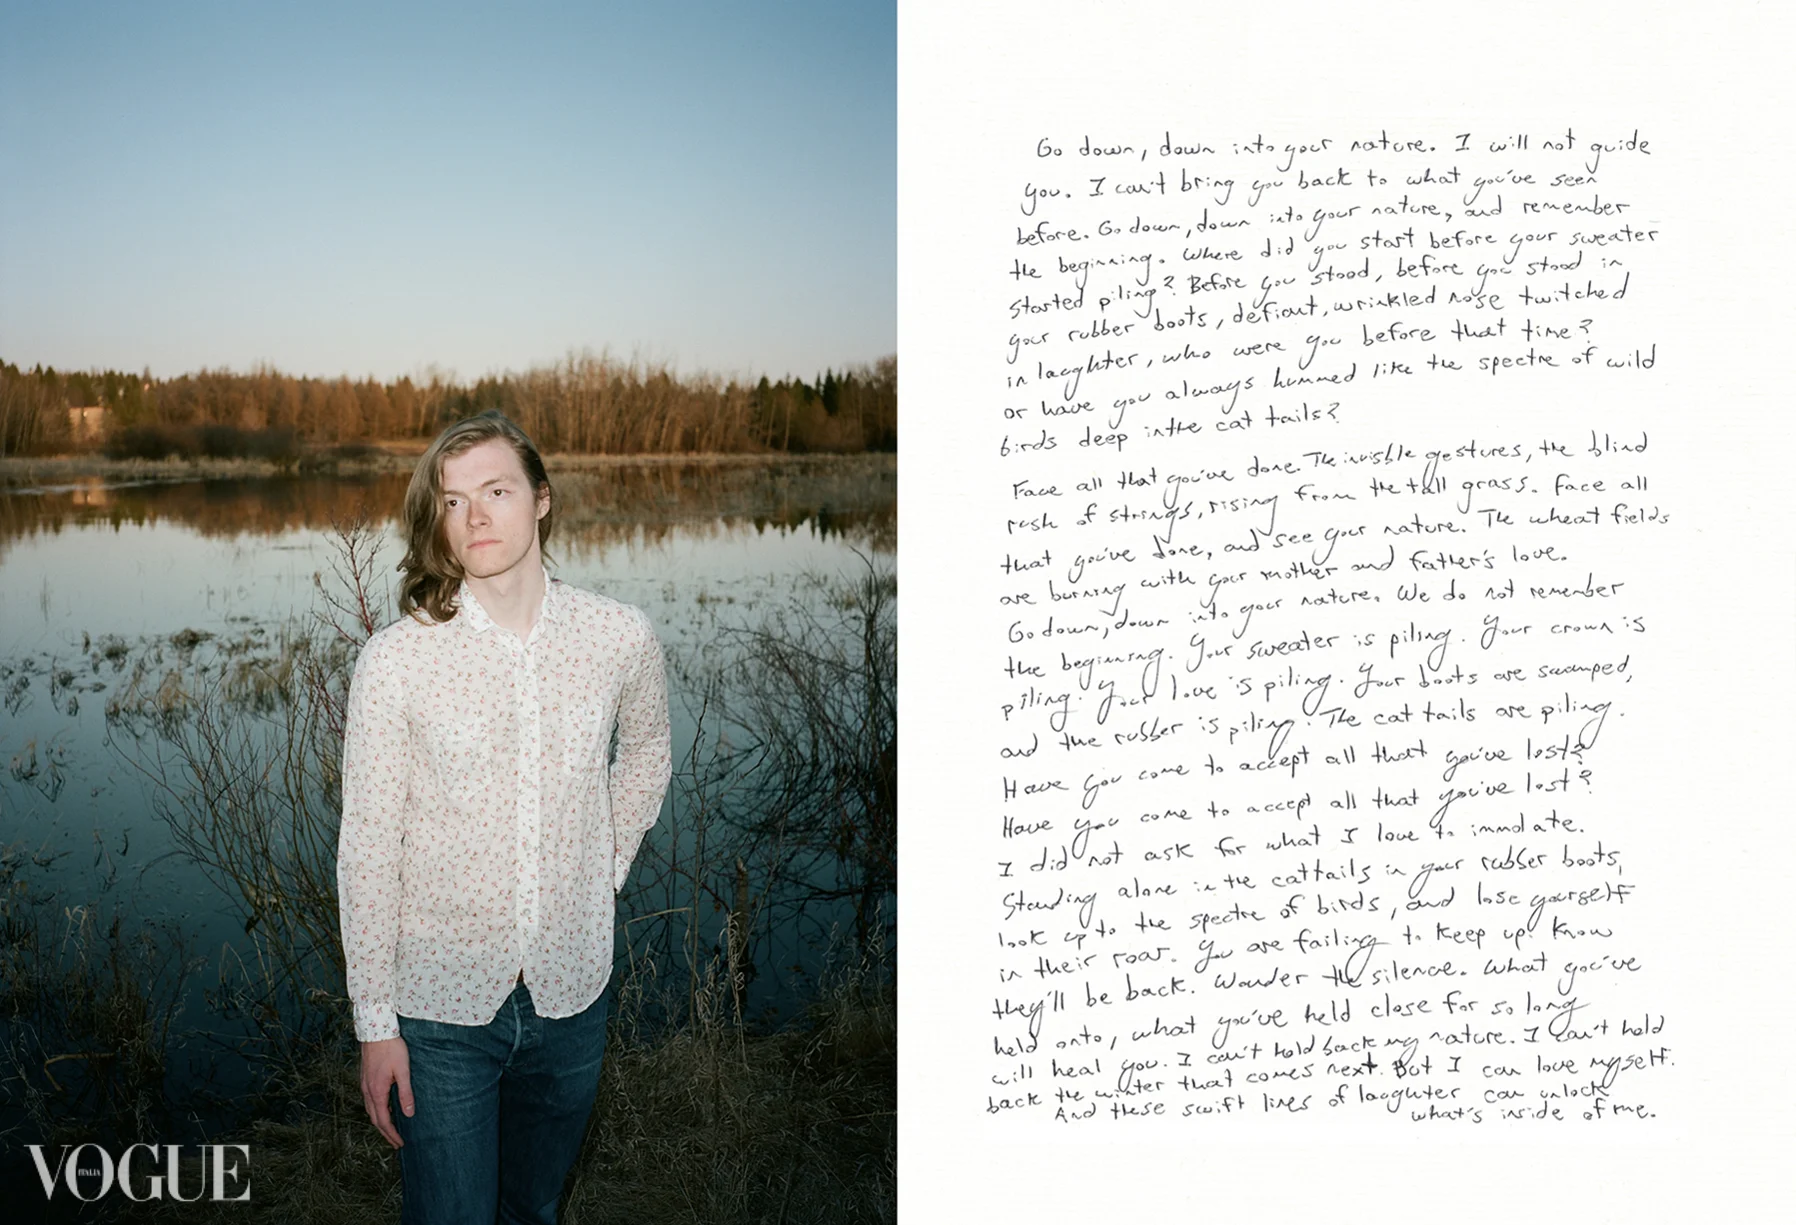 VOGUE
ITALIA
Go down, down into your nature. I will not guide
you. I can't bring you back to what you've seen
before. Go down, down into your nature, and remember
the beginning. Where did you start before your sweater
started piling? Before you stood, before you stood in
your rubber boots, defiant, wrinkled nose twitched
in laughter, who were you before that time?
or have you always hummed like the spectre of wild
birds deep in the cat tails?
Face all that you've done. The invisible gestures, the blind
rush of strings, rising from the tall grass. Face all
that you've done, and see your nature. The wheat fields
are burning with your mother and father's love.
Go down, down into your nature. We do not remember
the beginning. Your sweater is piling. Your crown is
piling. Your love is piling. Your boots are swamped,
and the rubber is piling. The cat tails are piling.
Have you come to accept all that you've lost?
Have you come to accept all that you've lost?
I did not ask for what I love to immolate.
Standing alone in the cattails in your rubber boots,
look up to the spectre of birds, and lose yourself
in their roar. You are failing to keep up. Know
they'll be back. Wander the silence. What you've
held onto, what you've held close for so long
will heal you. I can't hold back my nature. I can't hold
back the winter that comes next. But I can love myself.
And these swift lines of laughter can unlock
what's inside of me.